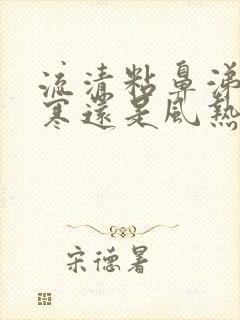 流清粘鼻涕
寒還是風熱
宋德暑